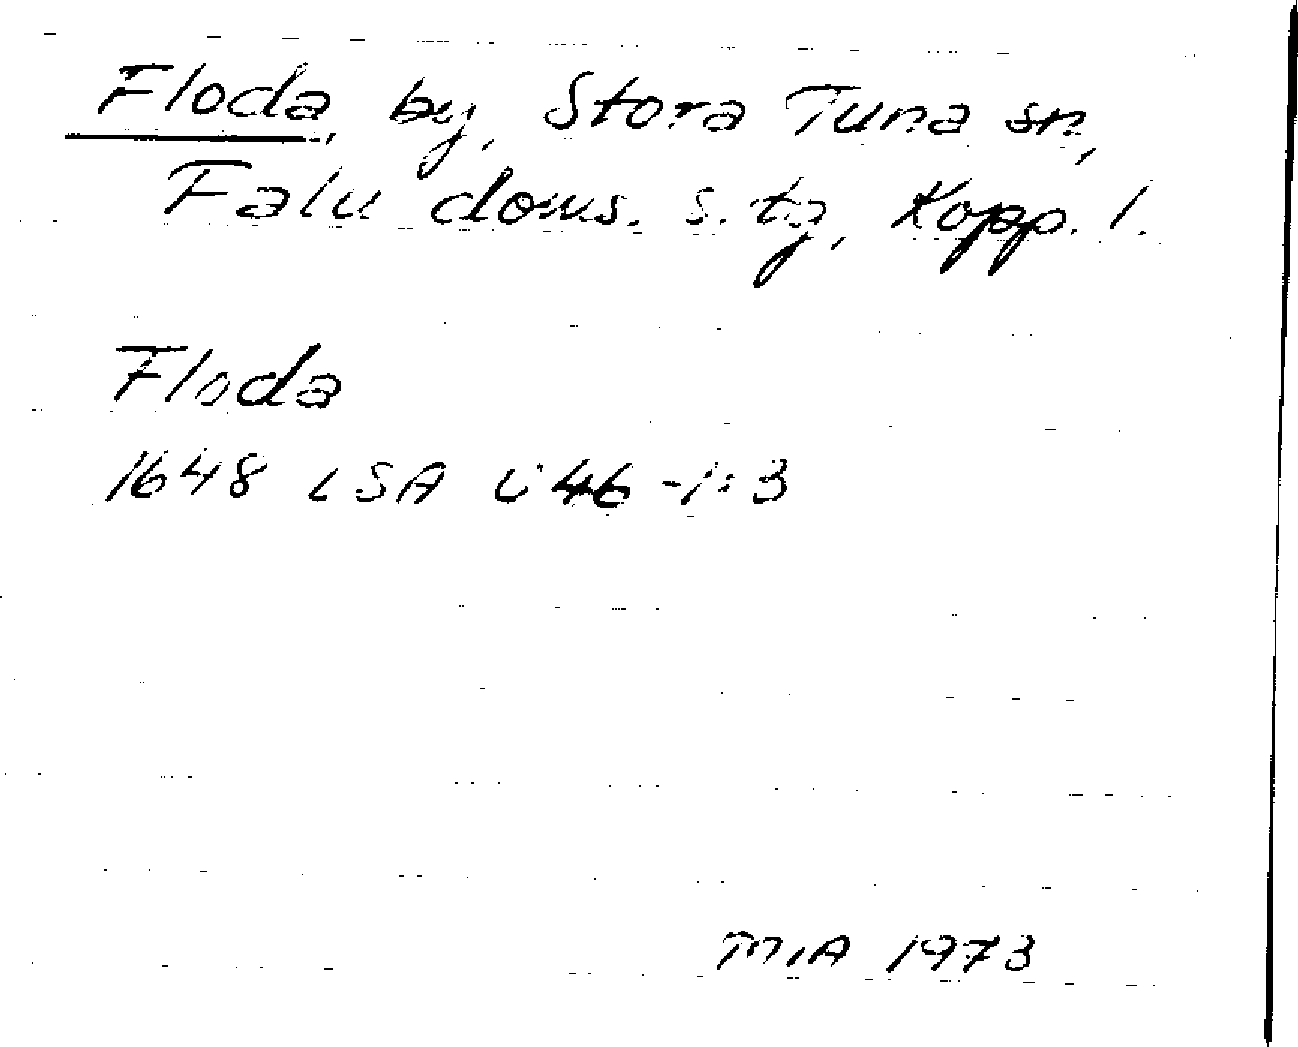 Floda, by, Stora Tuna sn,
Falu doms. s. tg, Kopp. l.
Floda
1648 LSA U 46-1:3
MIA 1973